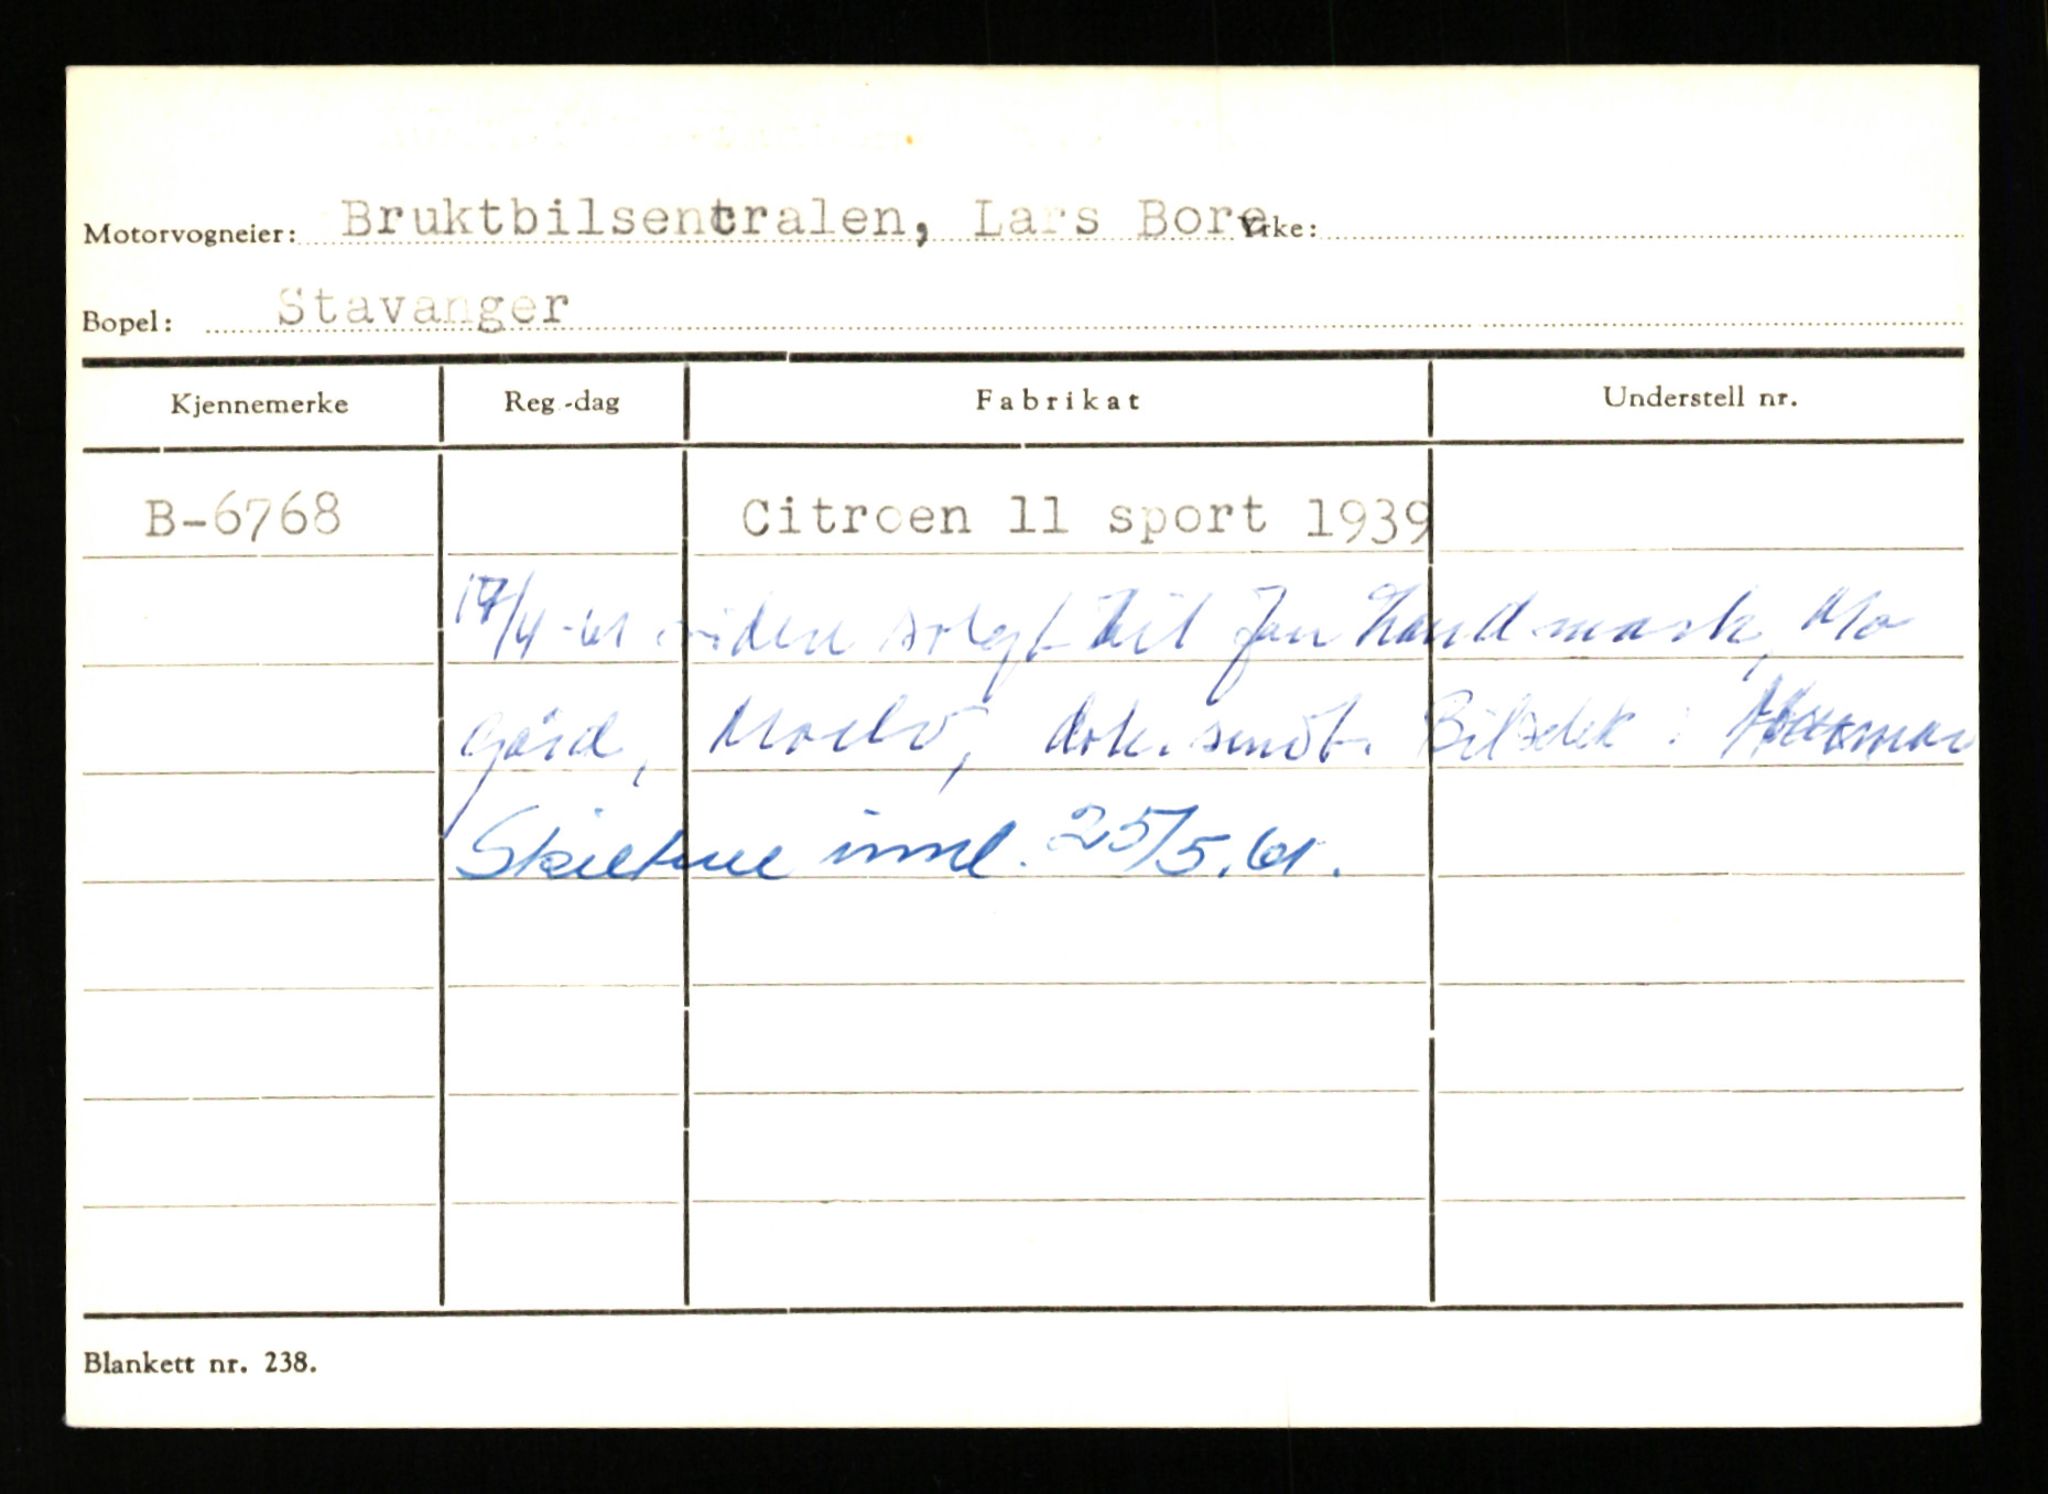 Motorvogneier: Bruktbilsentralen, Lars Bore Yrke:
Bopel: Stavanger
Kjennemerke Reg.-dag Fabrikat Understell nr.
B-6768 Citroen 11 sport 1939
17/4-61 siden solgt til Jan Landmark, Mo
gård, Moelv, dok. sendt. Bilsdek i
Skiltene innl. 25/5.61.
Blankett nr. 238.